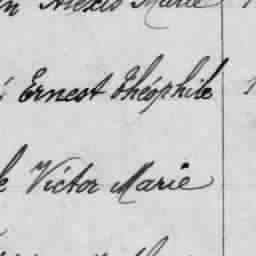 Alexis Marie
Ernest Théophile
Victor Marie